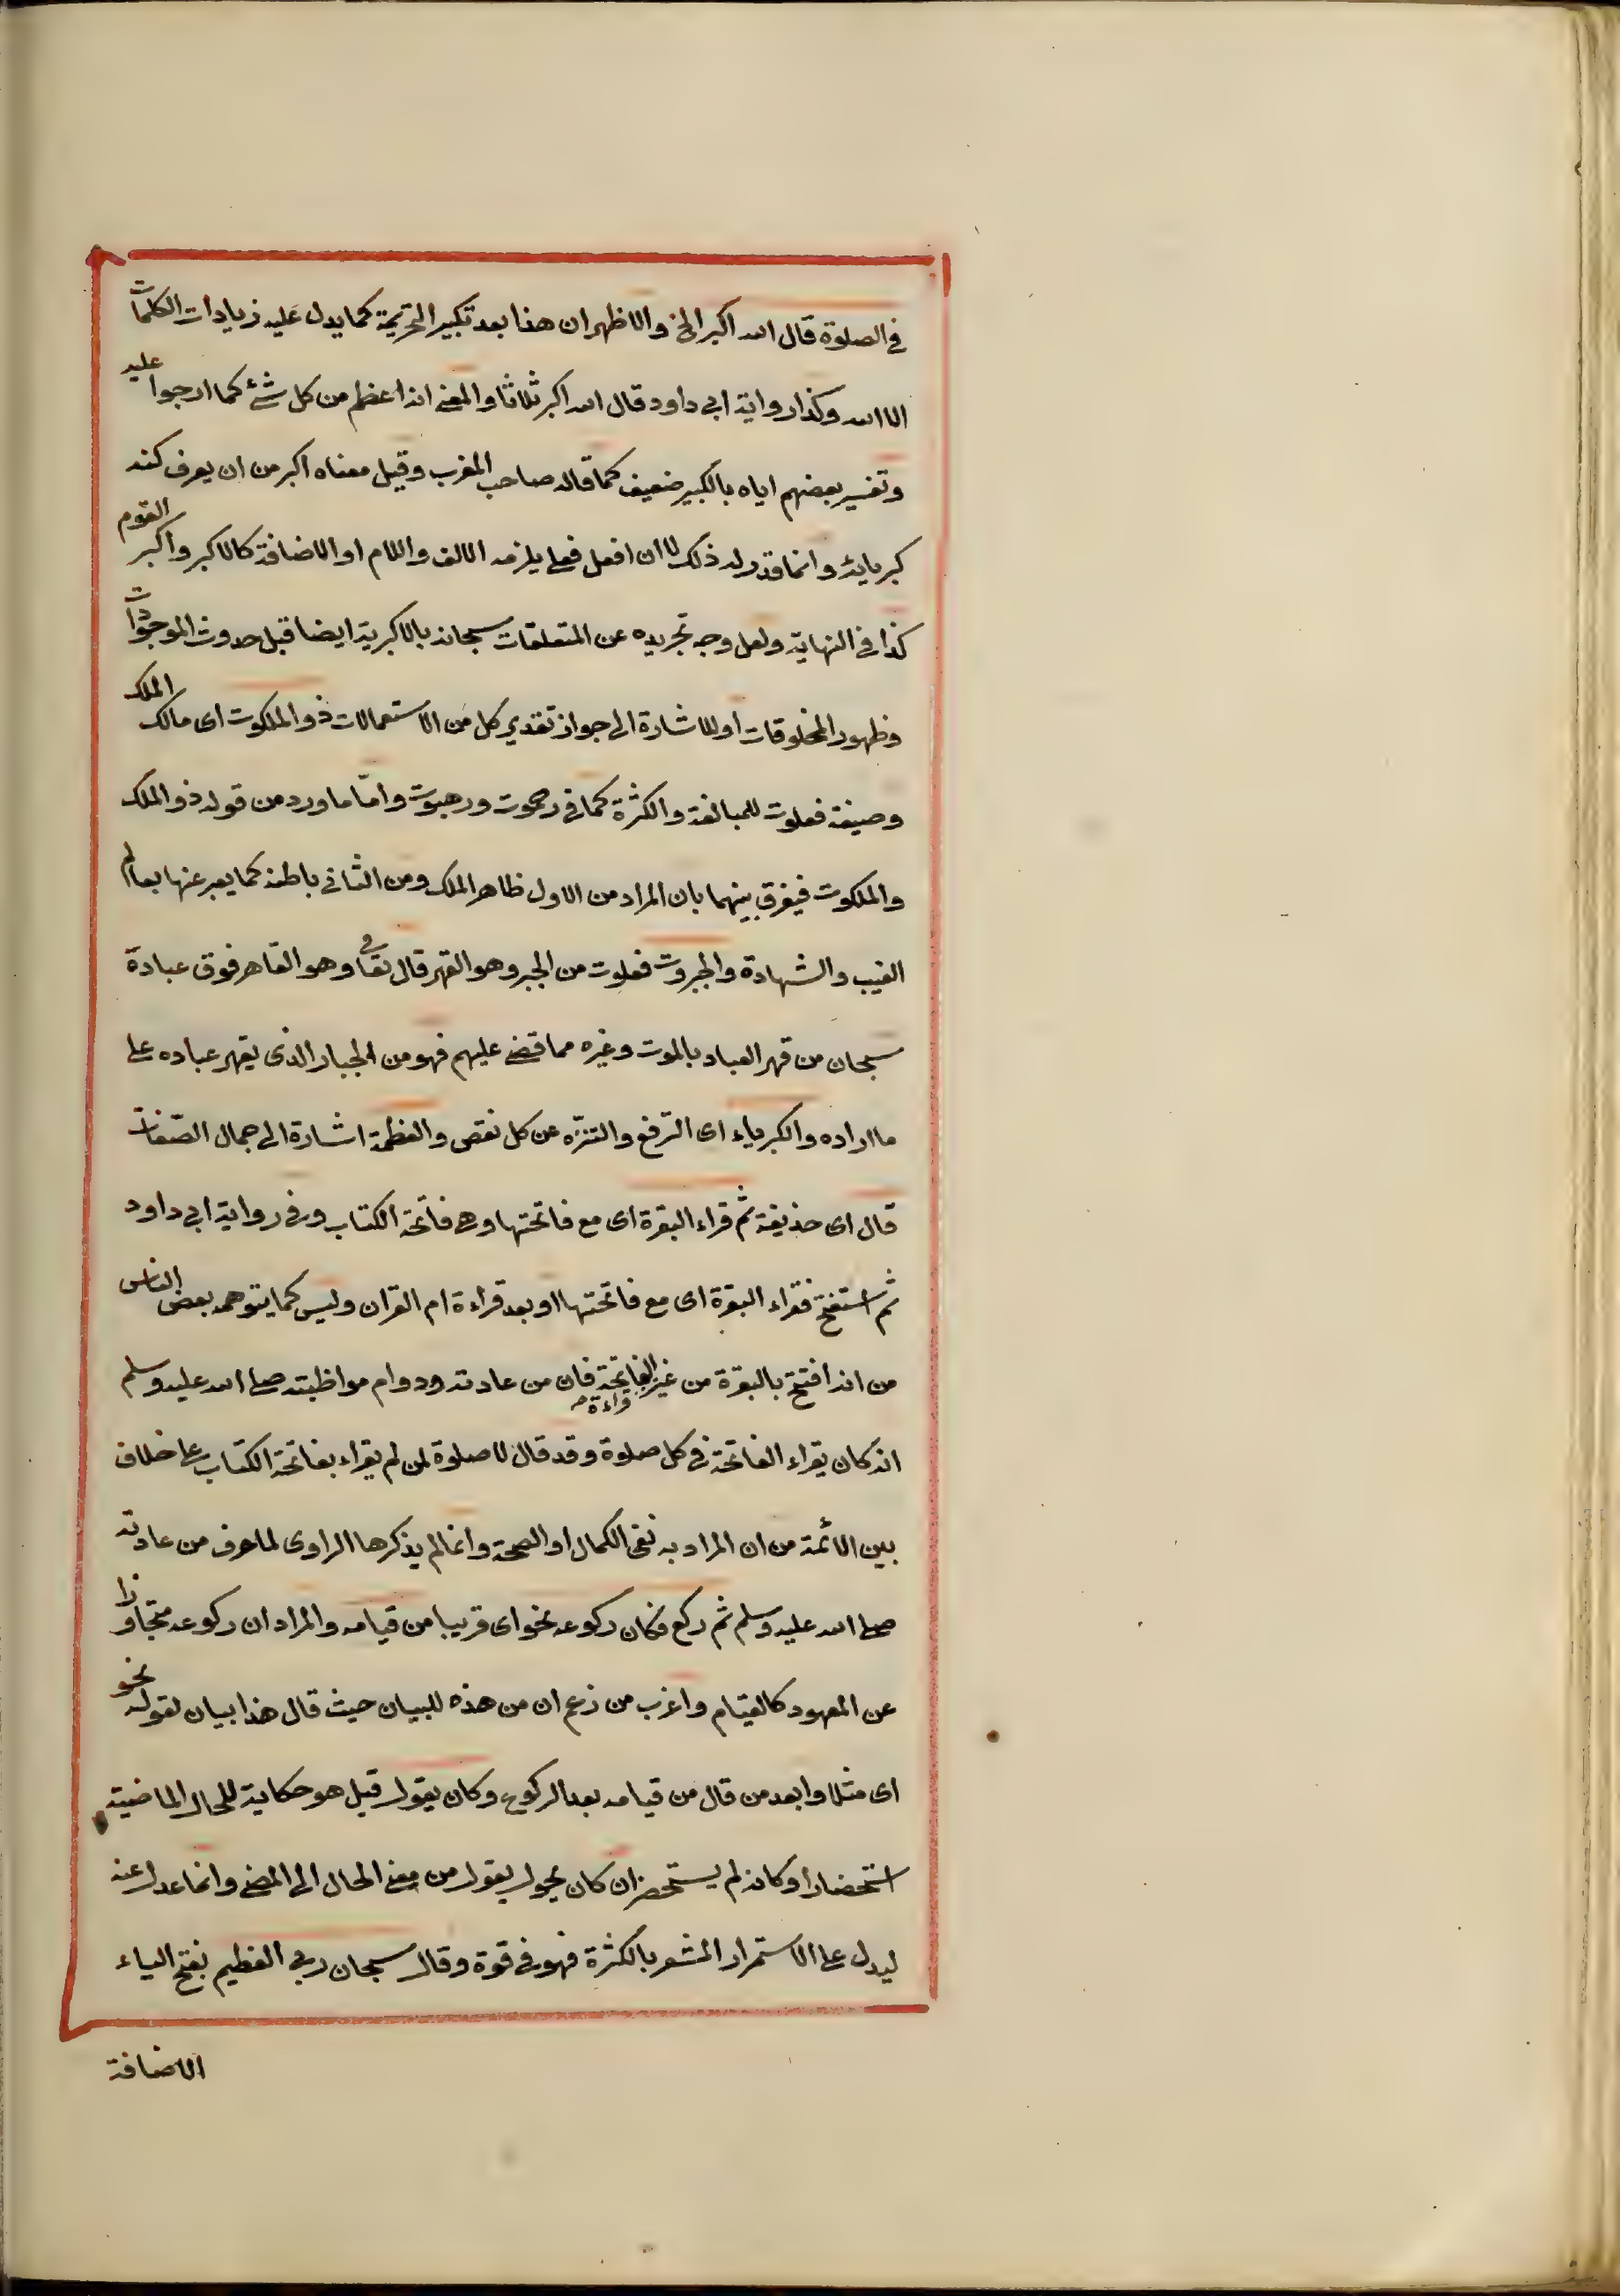 في الصلوة قال الله اكبر الخ والاظهر ان هذا بعد تكبير التحريمة كما يدل عليه زيادات الكلمات
الا الله وكذا رواية ابي داود قال الله اكبر ثلاثا والمعنى انه اعظم من كل شئ كما ارجوا عليه
وتفسير بعضهم اياه بالكبير ضعيف كما قاله صاحب المغرب وقيل معناه اكبر من ان يعرف كنه
كبريائه وانما قدر له ذلك لا ان افعل فعلى يلزمه الالف واللام او الاضافة كالاكبر واكبر القوم
كذا في النهاية ولعل وجه تجريده عن المتعلقات سبحانه بالاكبرية ايضا قبل حدوث الموجودات
وظهور المخلوقات او للاشارة الى جواز تقدير كل من الاستعمالات ذو الملكوت اى مالك الملك
وصيغة فعلوت للمبالغة والكثرة كما في رحموت ورهبوت وامّا ما ورد من قوله ذو الملك
والملكوت فيفرق بينهما بان المراد من الاول ظاهر الملك ومن الثاني باطنه كما يعبر عنها بعالم
الغيب والشهادة والجبروت فعلوت من الجبر وهو القهر قال تعا في وهو القاهر فوق عبادة
سبحان من قهر العباد بالموت وغيره مما قضى عليهم فهو من الجبار الذى يقهر عباده على
ما اراده والكبرياء اى الترفع والتنزّه عن كل نقص والعظمة اشارة الى جمال الصّفات
قال اى حذيفة ثم قراء البقرة اى مع فاتحتها وهى فاتحة الكتاب وفى رواية ابي داود
ثم استفتح فقراء البقرة اى مع فاتحتها او بعد قراءة ام القران وليس كما يتوهمه بعض الناس
من انه افتتح بالبقرة من غير قراءة الفاتحة فان من عادته ودوام مواظبته صلى الله عليه وسلم
انه كان يقراء الفاتحة فى كل صلوة وقد قال لا صلوة لمن لم يقراء بفاتحة الكتاب على خلاف
بين الائمة من ان المراد به نفى الكمال او الصحة وانما لم يذكرها الراوى لما عرف من عادته
صلى الله عليه وسلم ثم ركع فكان ركوعه نحوا اى قريبا من قيامه والمراد ان ركوعه متجاوزا
عن المعهود كالقيام واغرب من زعم ان من هذه للبيان حيث قال هذا بيان لقوله نحو
اى مثلا وابعد من قال من قيامه بعد الركوع وكان يقول قيل هو حكاية للحال الماضية
استحضارا وكانه لم يستحضر ان كان يحول يقول من معنى الحال الى المضى وانما عدل عنه
ليدل على الاستمرار المشعر بالكثرة فهو فى قوة وقال سبحان ربى العظيم بفتح الياء
الاضافة